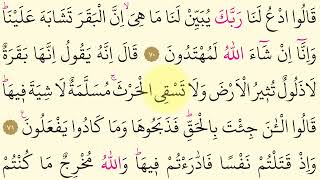 قَالُوا ادْعُ لَنَا رَبَّكَ يُبَيِّنْ لَنَا مَا هِيَۙ اِنَّ الْبَقَرَ تَشَابَهَ عَلَيْنَاۜ
وَاِنَّٓا اِنْ شَٓاءَ اللّٰهُ لَمُهْتَدُونَ ﴿٧٠﴾ قَالَ اِنَّهُ يَقُولُ اِنَّهَا بَقَرَةٌ
لَاذَلُولٌ تُثٖيرُ الْاَرْضَ وَلَا تَسْقِى الْحَرْثَۚ مُسَلَّمَةٌ لَا شِيَةَ فٖيهَاۜ
قَالُوا الْـٰٔنَ جِئْتَ بِالْحَقِّۜ فَذَبَحُوهَا وَمَا كَادُوا يَفْعَلُونَ۟ ﴿٧١﴾
وَاِذْ قَتَلْتُمْ نَفْسًا فَادّٰرَءْتُمْ فٖيهَاۜ وَاللّٰهُ مُخْرِجٌ مَا كُنْتُمْ